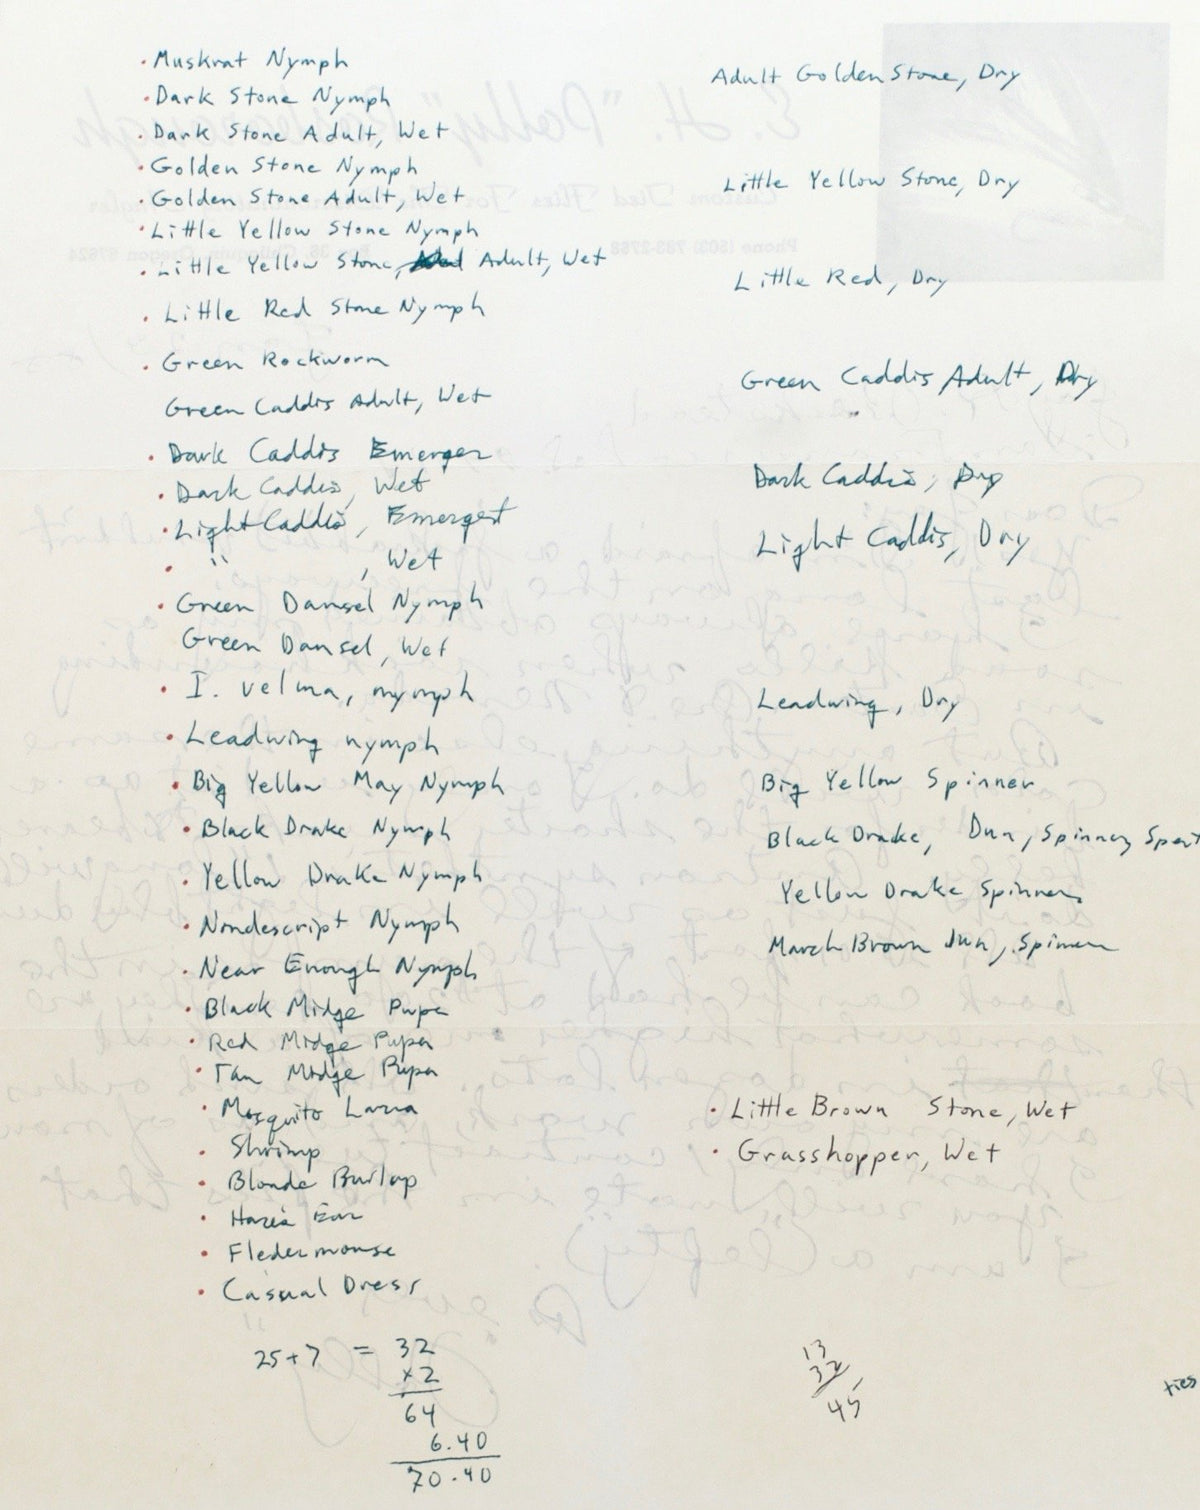 · Muskrat Nymph
· Dark Stone Nymph
· Dark Stone Adult, Wet
· Golden Stone Nymph
· Golden Stone Adult, Wet
· Little Yellow Stone Nymph
· Little Yellow Stone, Adult, Wet
· Little Red Stone Nymph
· Green Rockworm
Green Caddis Adult, Wet
· Dark Caddis Emerger
· Dark Caddis, Wet
· Light Caddis, Emergent
· " , Wet
· Green Damsel Nymph
Green Damsel, Wet
· I. velma, nymph
· Leadwing nymph
· Big Yellow May Nymph
· Black Drake Nymph
· Yellow Drake Nymph
· Nondescript Nymph
· Near Enough Nymph
· Black Midge Pupa
· Red Midge Pupa
· Tan Midge Pupa
· Mosquito Larva
· Shrimp
· Blonde Burlap
· Hare's Ear
· Fledermouse
· Casual Dress
25+7 = 32
x2
64
6.40
70.40
Adult Golden Stone, Dry
Little Yellow Stone, Dry
Little Red, Dry
Green Caddis Adult, Dry
Dark Caddis, Dry
Light Caddis, Dry
Leadwing, Dry
Big Yellow Spinner
Black Drake, Dun, Spinner, Spent
Yellow Drake Spinner
March Brown Dun, Spinner
· Little Brown Stone, Wet
· Grasshopper, Wet
13
32
45
ties